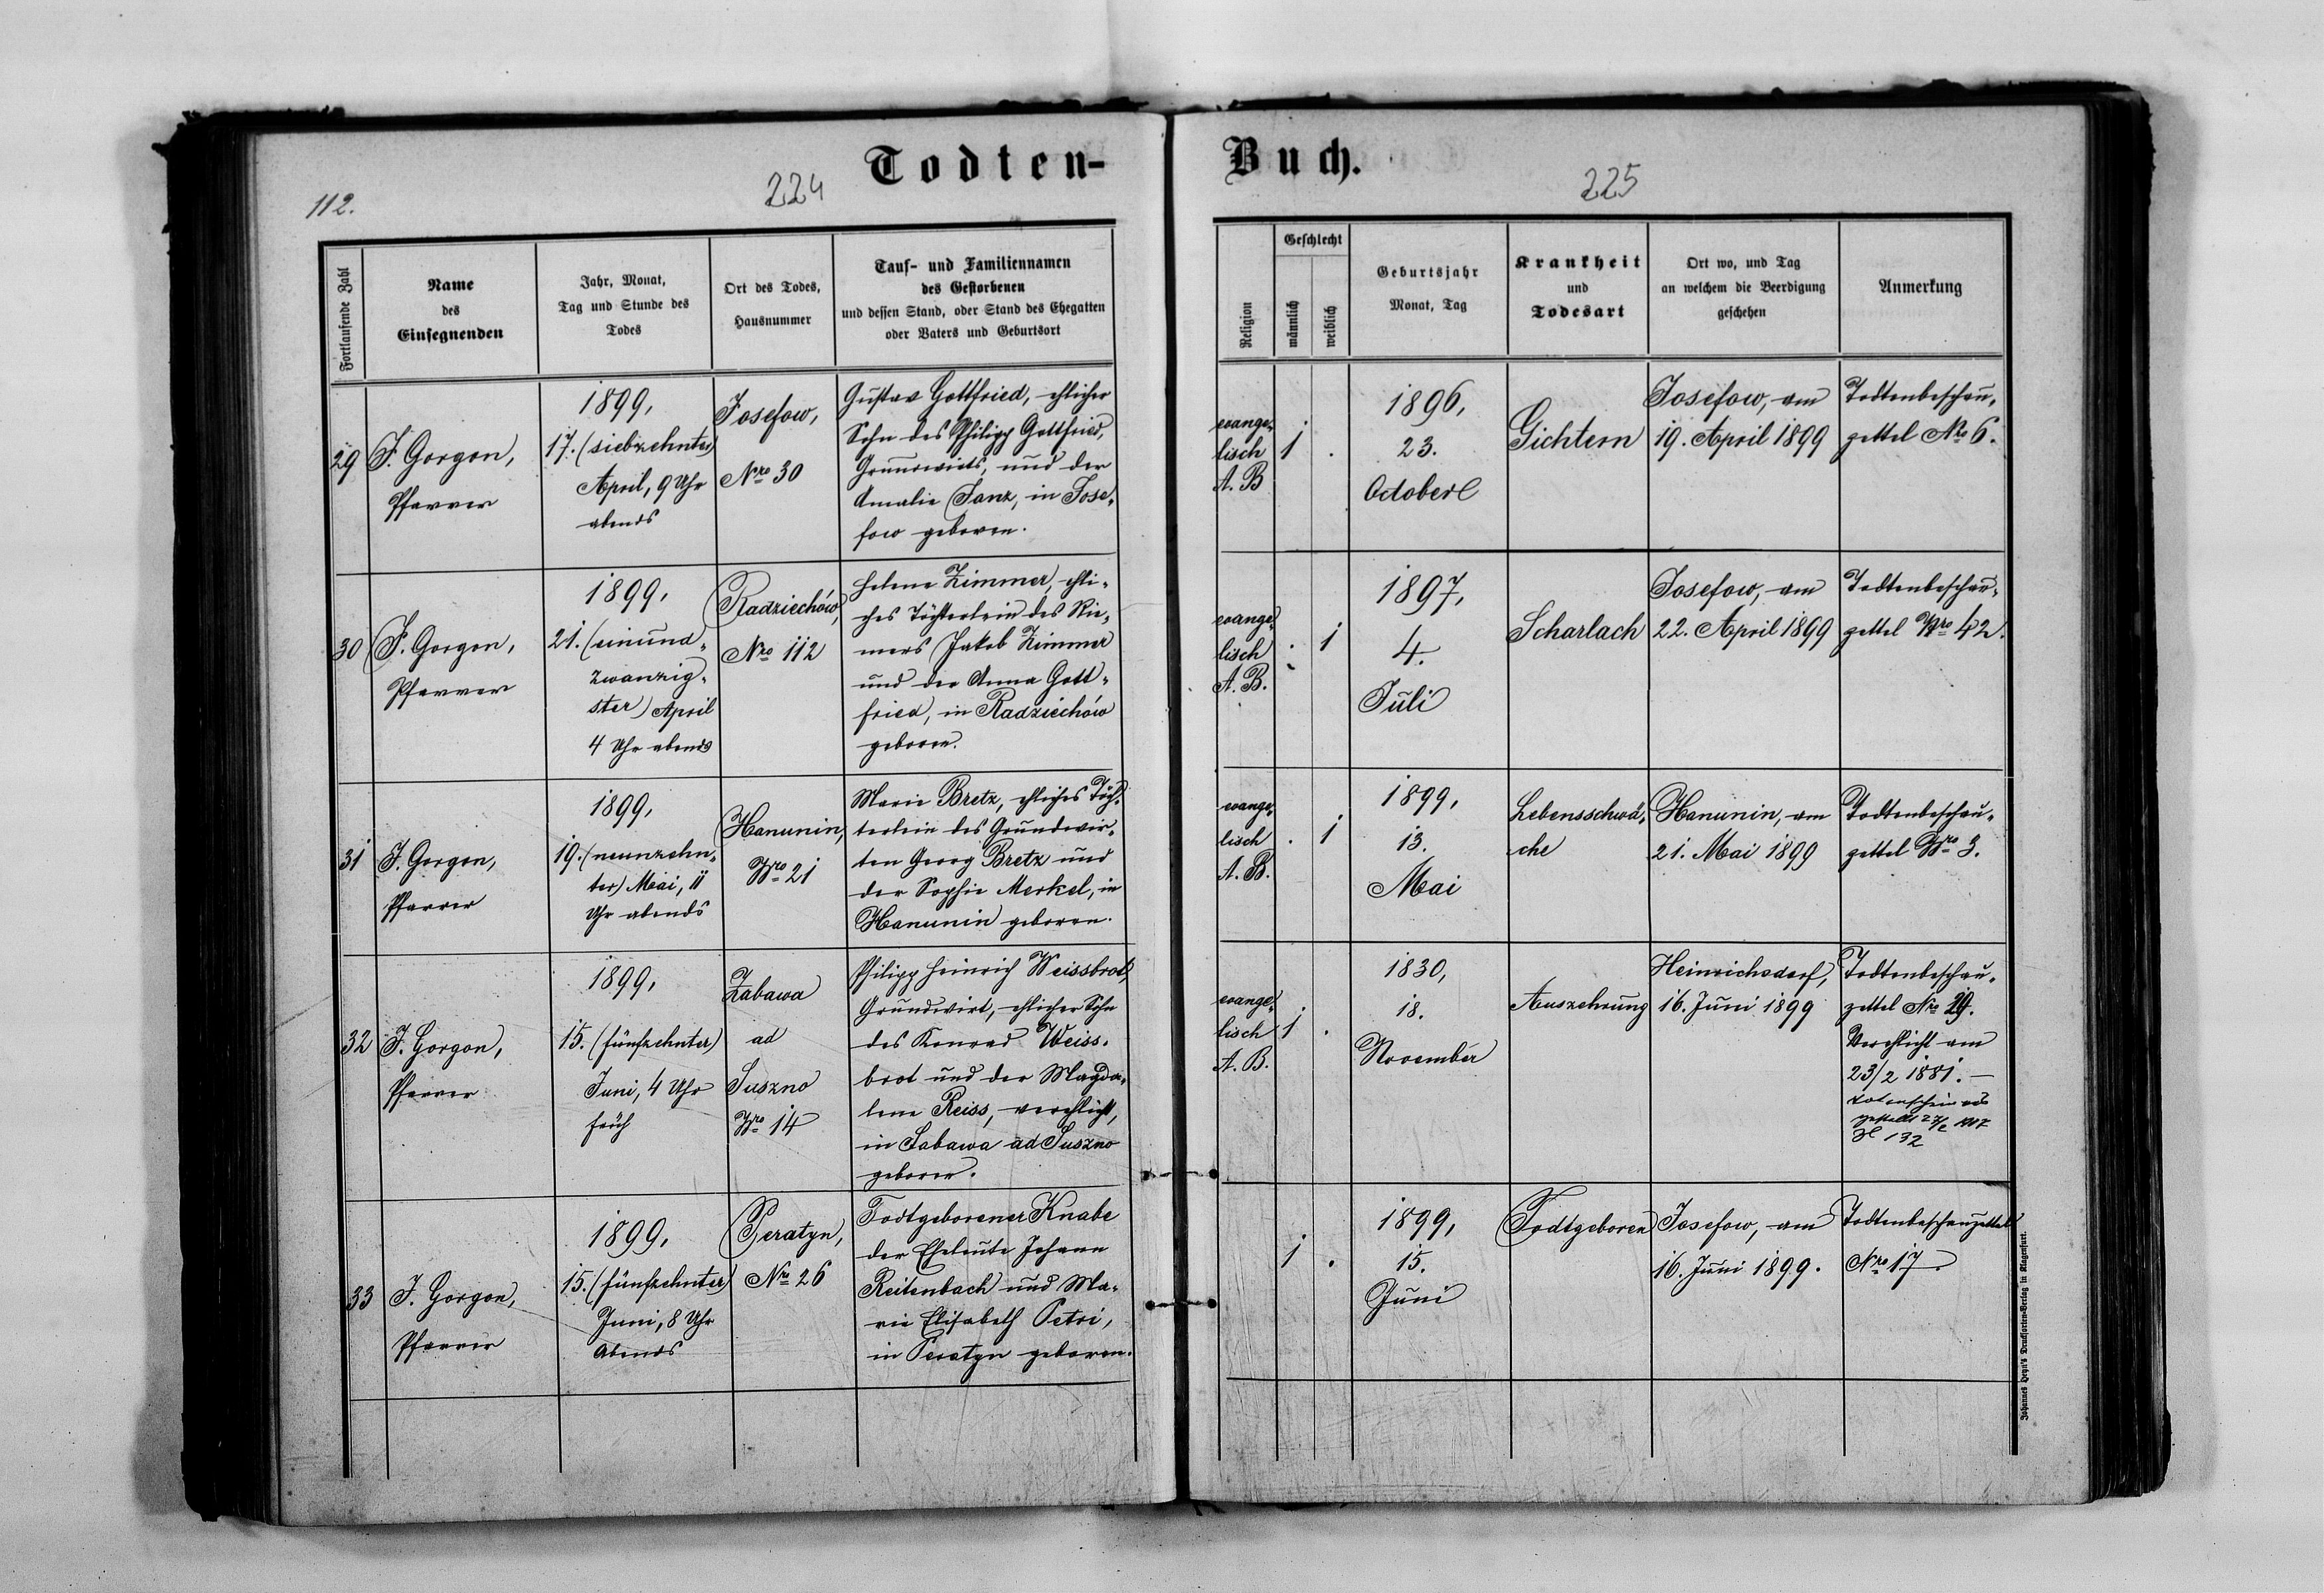 Todten-
224
112.
Fortlaufende Zahl
Name
des
Einsegnenden
Jahr, Monat,
Tag und Stunde des
Todes
Ort des Todes,
Hausnummer
Tauf- und Familiennamen
des Gestorbenen
und dessen Stand, oder Stand des Ehegatten
oder Vaters und Geburtsort
29
J. Gorgon,
Pfarrer
1899,
17. (siebzehnter)
April, 9 Uhr
abends
Josefow,
Nro 30
Gustav Gottfried, ehlicher
Sohn des Philipp Gottfried,
Grundwirts, und der
Amalie Janz, in Jose-
fow geboren.
30
J. Gorgon,
Pfarrer
1899,
21. (einund-
zwanzig-
ster) April
4 Uhr abends
Radziechów,
Nro 112
Helene Zimmer, ehli-
ches Töchterlein des Rie-
mers Jakob Zimmer
und der Anna Gott-
fried, in Radziechów
geboren.
31
J. Gorgon,
Pfarrer
1899,
19. (neunzehn-
ter) Mai, 11
Uhr abends
Hanunin,
Nro 21
Marie Bretz, ehliches Töch-
terlein des Grundwir-
ten Georg Bretz und
der Sophie Merkel, in
Hanunin geboren.
32
J. Gorgon,
Pfarrer
1899,
15. (fünfzehnter)
Juni, 4 Uhr
früh
Zabawa
ad
Suszno
Nro 14
Philipp Heinrich Weissbrot,
Grundwirt, ehlicher Sohn
des Konrad Weiss-
brot und der Magda-
lena Reiss, verehlicht,
in Sabawa ad Suszno
geboren.
33
J. Gorgon,
Pfarrer
1899,
15. (fünfzehnter)
Juni, 8 Uhr
Abends
Peratyn,
Nro 26
Todtgeborener Knabe
der Eheleute Johann
Reitenbach und Ma-
rie Elisabeth Petri,
in Peratyn geboren.
Buch.
225
Religion
Geschlecht
männlich
weiblich
Geburtsjahr
Monat, Tag
Krankheit
und
Todesart
Ort wo, und Tag
an welchem die Beerdigung
geschehen
Anmerkung
evange-
lisch
A. B
1 .
1896,
23.
October
Gichtern
Josefow, am
19. April 1899
Todtenbeschau-
zettel Nro 6.
evange-
lisch
A. B.
. 1
1897,
4.
Juli
Scharlach
Josefow, am
22. April 1899
Todtenbeschau-
zettel Nro 42.
evange-
lisch
A. B.
. 1
1899,
13.
Mai
Lebensschwä-
che
Hanunin, am
21. Mai 1899
Todtenbeschau-
zettel Nro 3.
evange-
lisch
A. B.
1 .
1830,
18.
November
Auszehrung
Heinrichsdorf,
16. Juni 1899
Todtenbeschau-
zettel Nro 29.
Verehlicht am
23/2 1881. —
132
1 .
1899,
15.
Juni
Todtgeboren
Josefow, am
16. Juni 1899.
Todtenbeschauzettel
Nro 17.
Johannes Heyn's Drucksorten-Verlag in Klagenfurt.